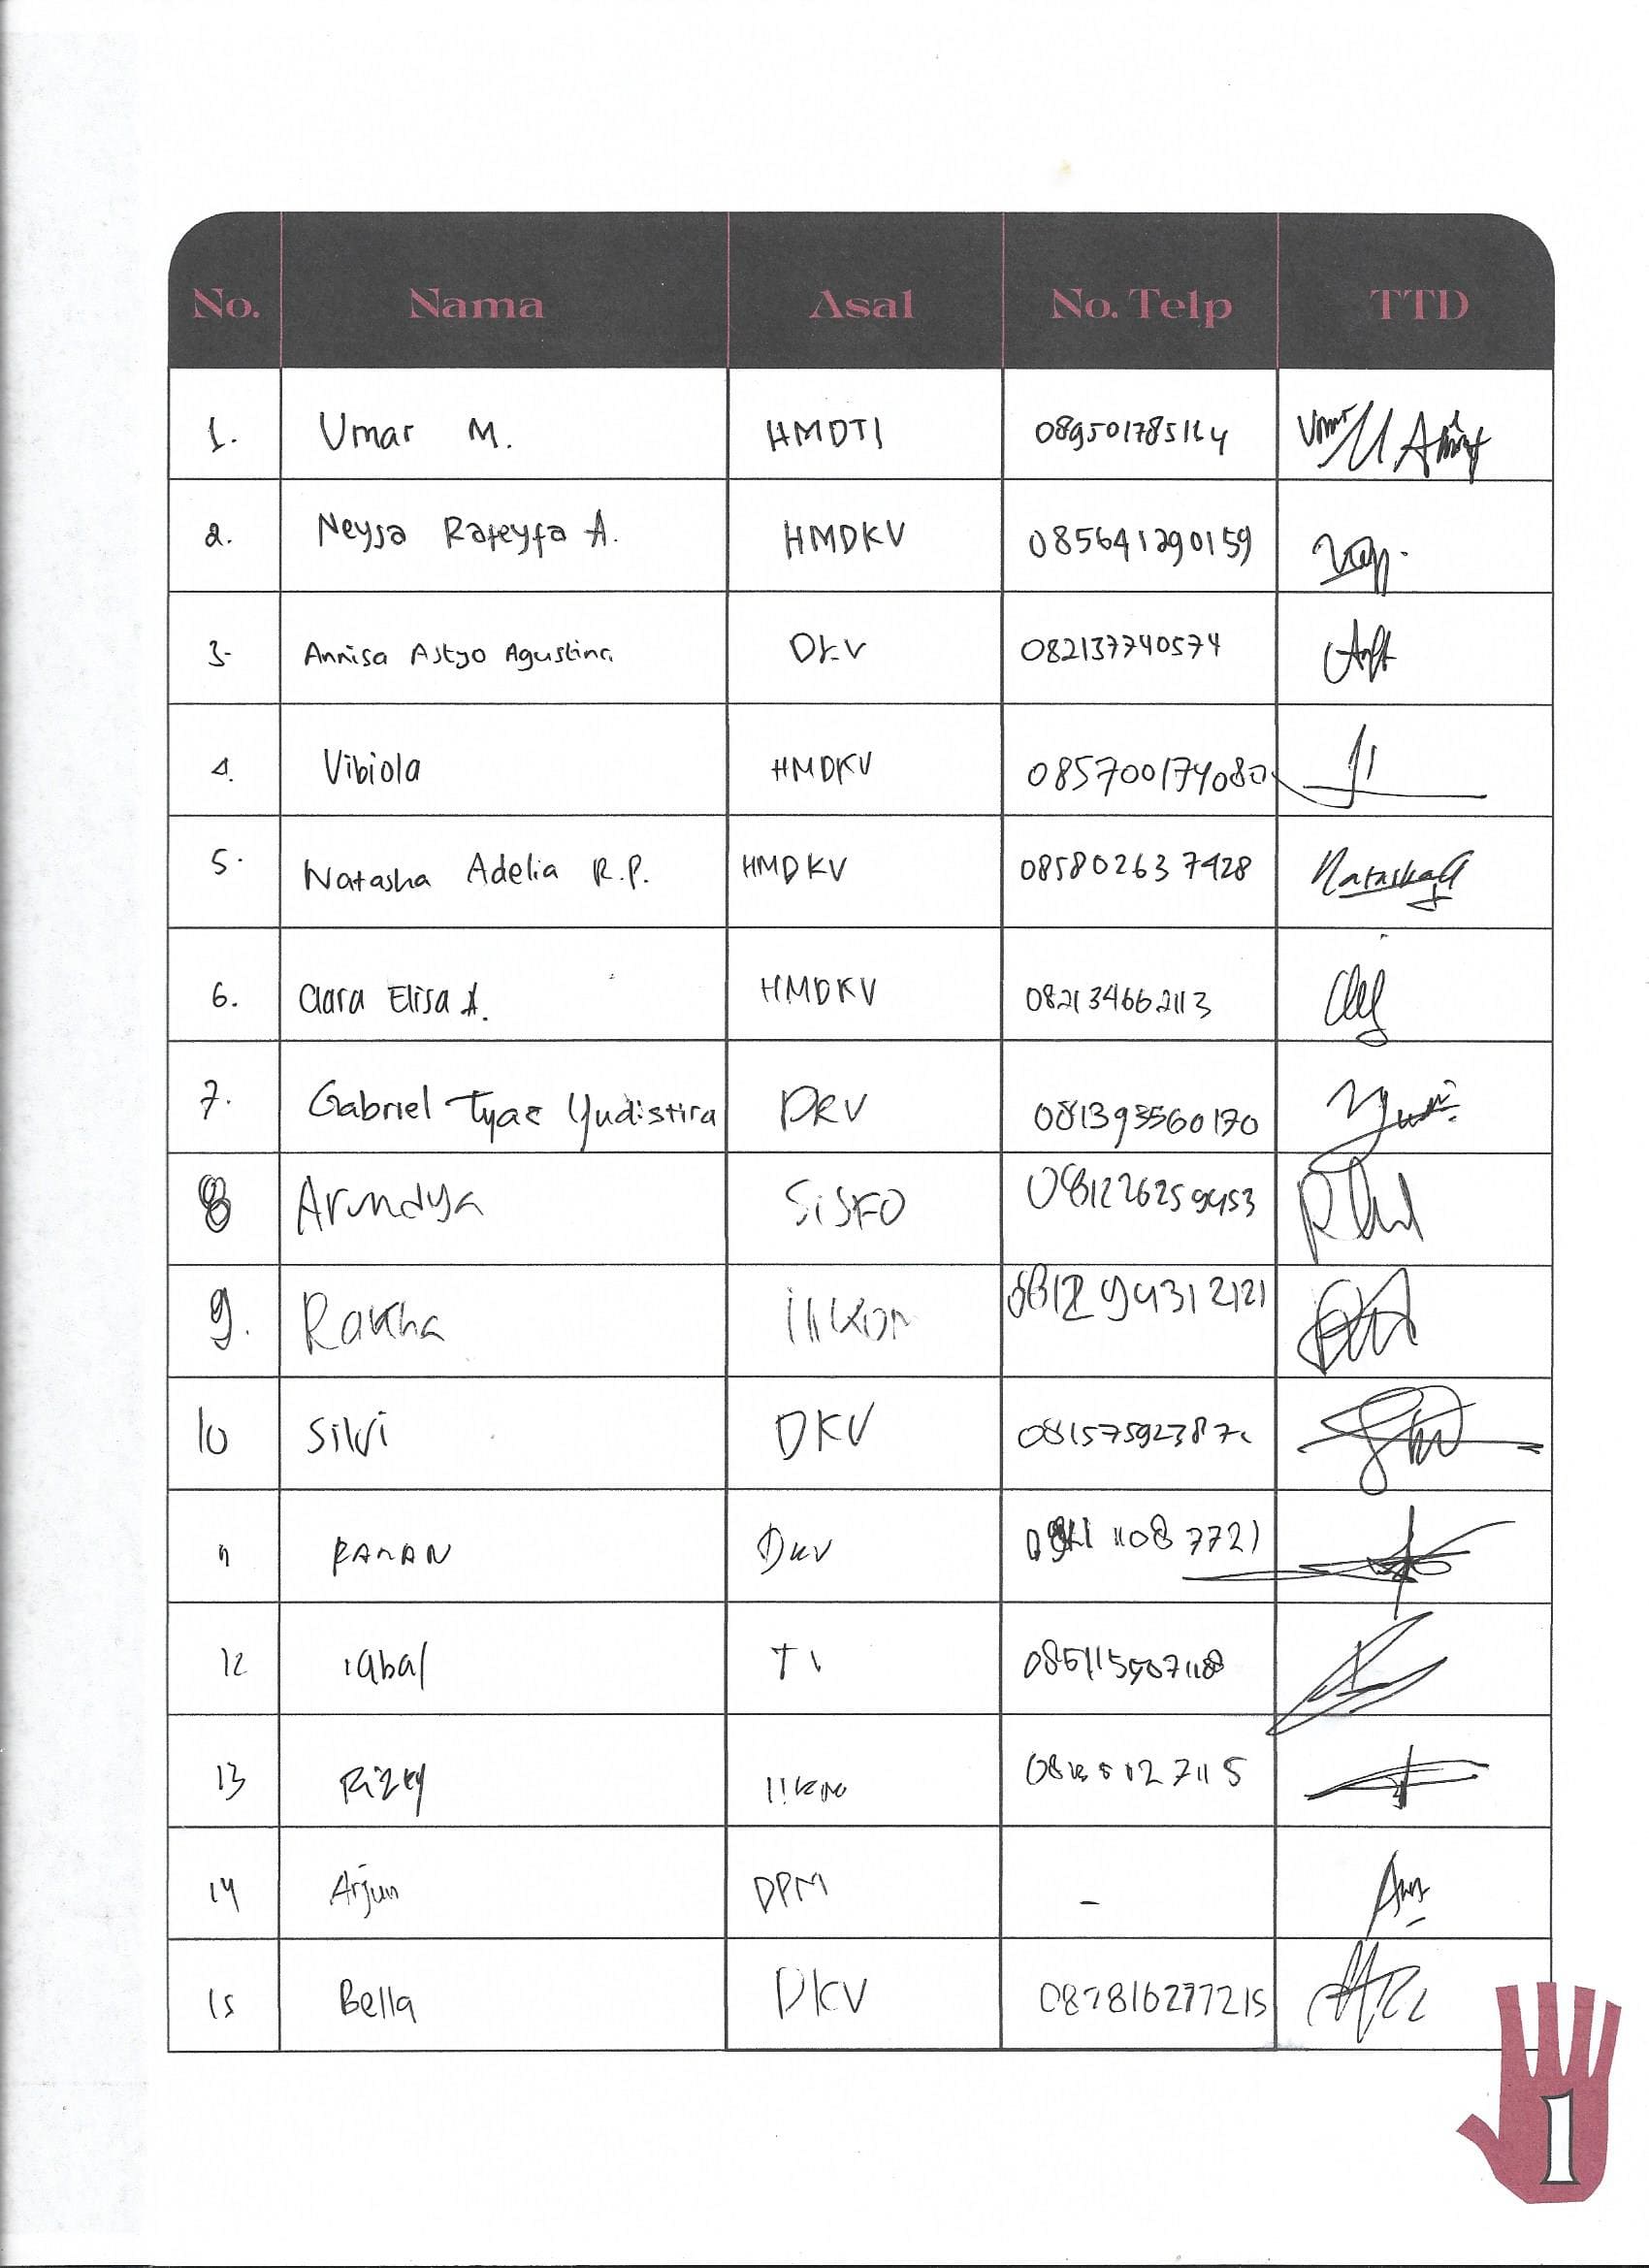 No. Nama Asal No. Telp TTD
1. Umar M. HMDTI 089501785164
2. Neysa Rafeyfa A. HMDKV 085641290159
3. Annisa Astyo Agustina DKV 082137740574
4. Vibiola HMDKV 085700174080
5. Natasha Adelia R.P. HMDKV 085802637428 Natasha
6. Clara Elisa A. HMDKV 082134662113
7. Gabriel Tyas Yudistira DKV 081393560170
8 Arundya SISFO 081226259453
9. Rakha ilkom 081294312121
10 Silvi DKV
11 RAMAN DKV
12 iqbal TI
13 Rizky
14 Arjun DPM -
15 Bella DKV 087816277215
1